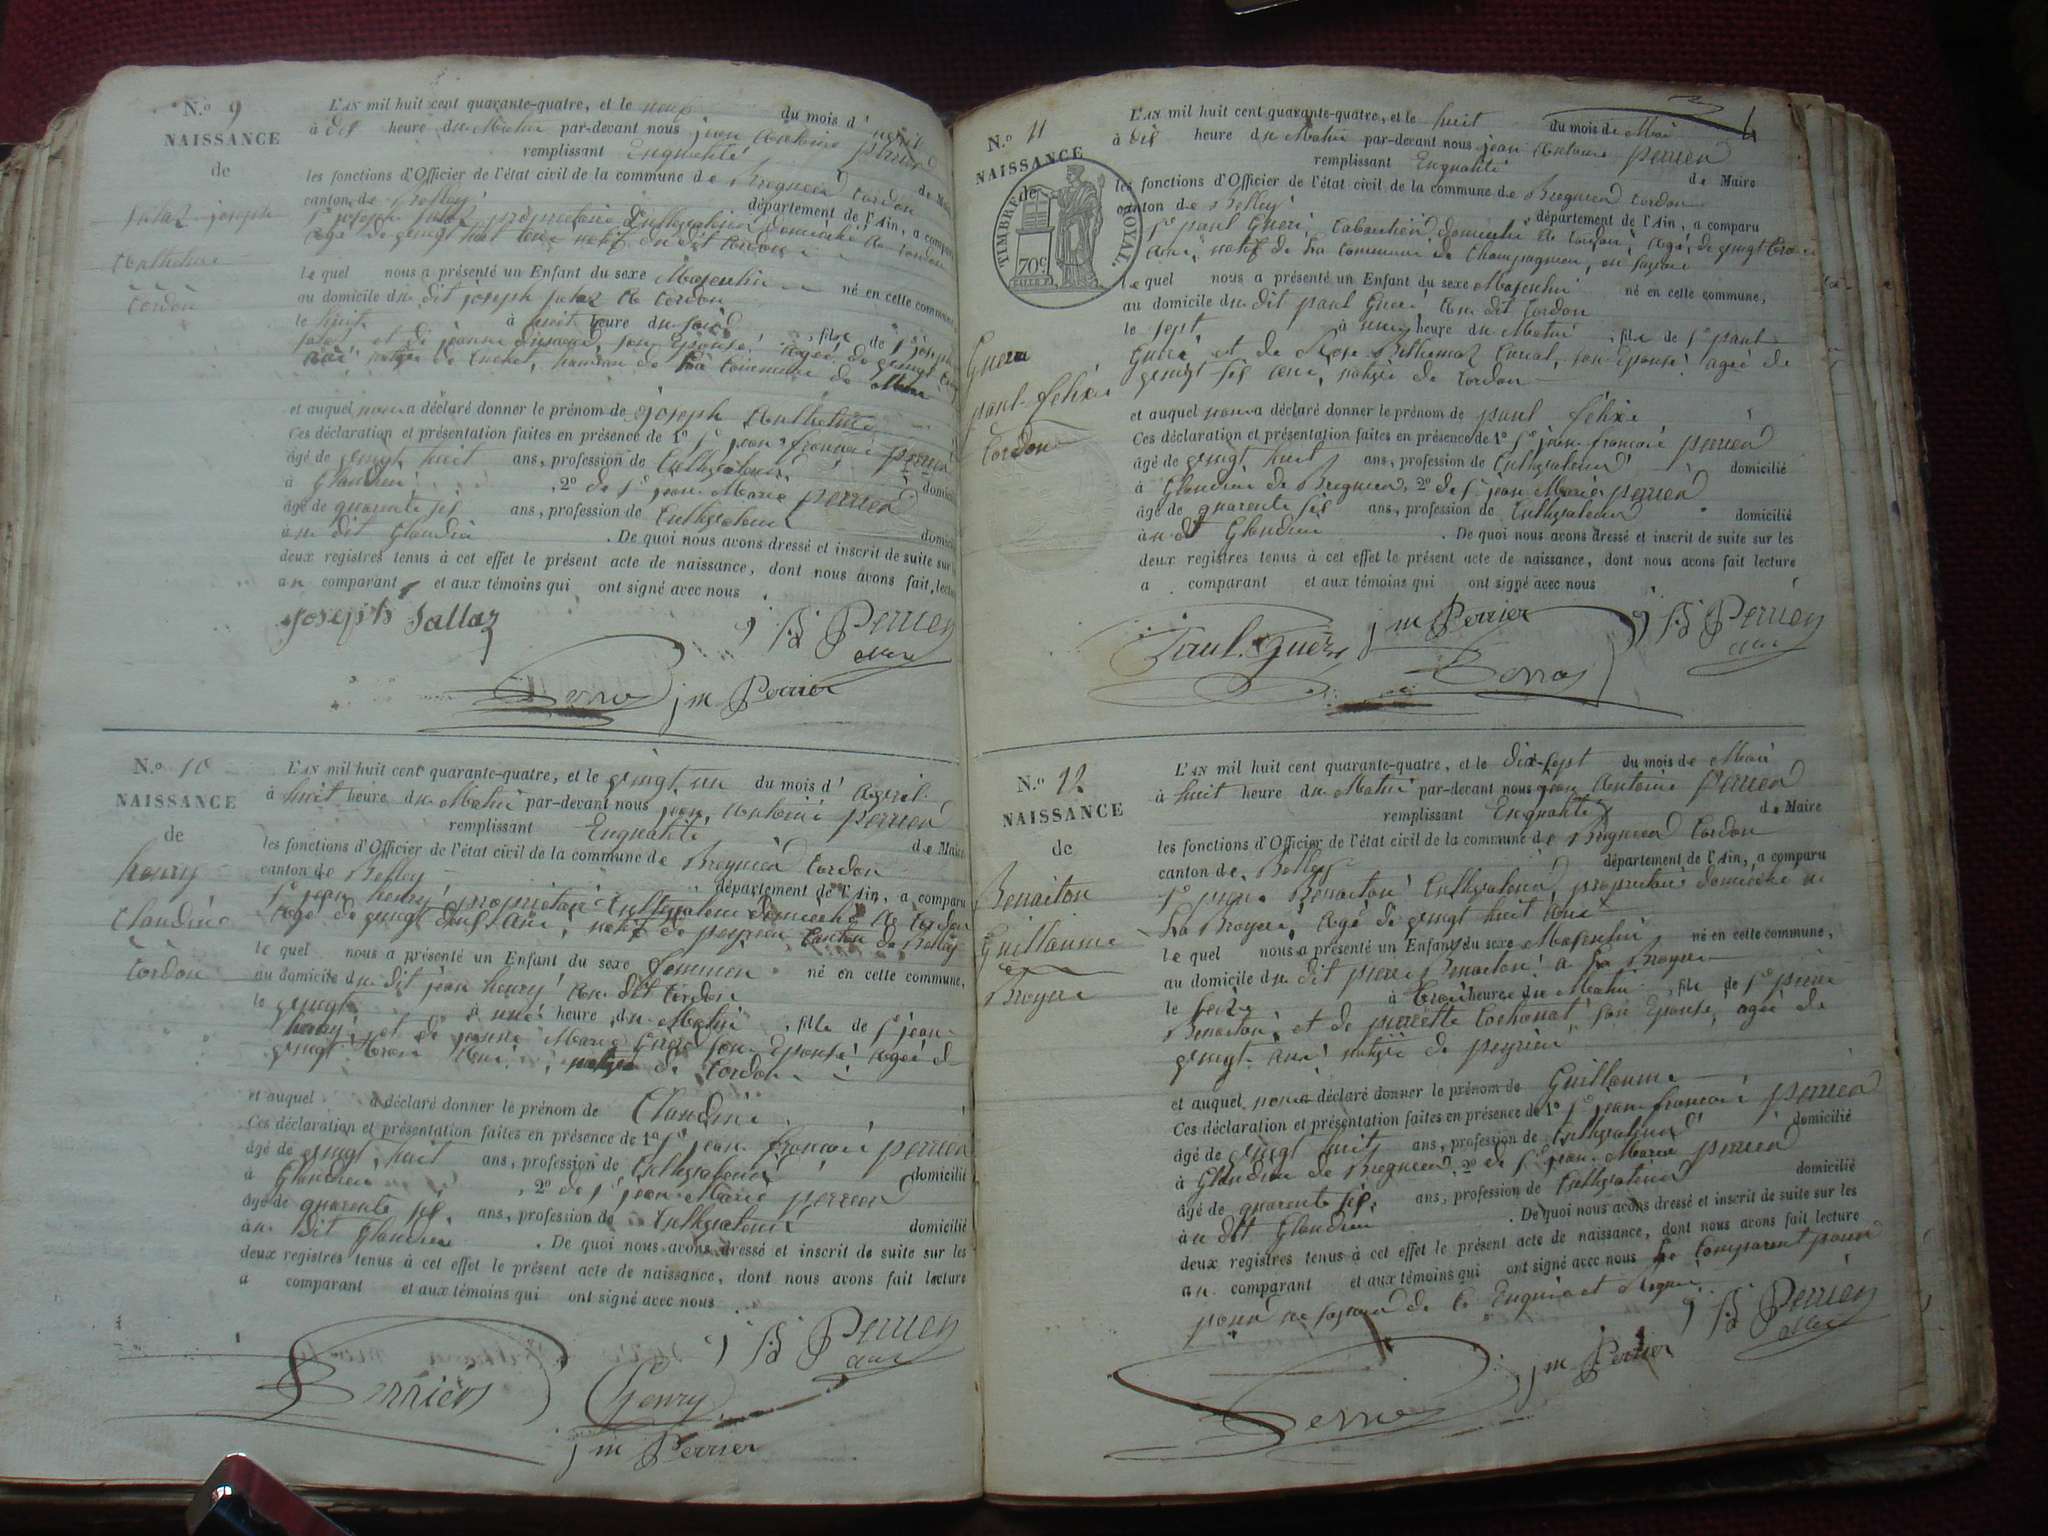 N.º 9
NAISSANCE
de
Salaz joseph
Anthelme
Cordon
L'AN mil huit cent quarante-quatre, et le neuf du mois d'avril
à dis heure du Matin par-devant nous jean Antoine perrier
remplissant Enqualité de Maire
les fonctions d'Officier de l'état civil de la commune de Bregnier Cordon
canton de Belley département de l'Ain, a comparu
Sr joseph Salaz propriétaire Cultivateur domicilié a Cordon
agé de vingt huit ans natif du dit Cordon
lequel nous a présenté un Enfant du sexe Masculin né en cette commune
au domicile du dit joseph Salaz a Cordon
le huit à huit heure du soir, fils de Sr joseph
Salaz et de jeanne son Epouse agée de vingt
ans native de hameau de la Commune de
et auquel nous a déclaré donner le prénom de joseph Anthelme
Ces déclaration et présentation faites en présence de 1º Sr jean françois perrier
âgé de vingt huit ans, profession de Cultivateur domicilié
à Glandieu, 2º de Sr jean Marie perrier
âgé de quarente sis ans, profession de Cultivateur domicilié
au dit Glandieu. De quoi nous avons dressé et inscrit de suite sur les
deux registres tenus à cet effet le présent acte de naissance, dont nous avons fait lecture
au comparant et aux témoins qui ont signé avec nous
joseph Sallaz
j A Perrier
Maire
j m Perrier
N.º 10
NAISSANCE
de
henry
Claudine
Cordon
L'AN mil huit cent quarante-quatre, et le vingt un du mois d'Avril
à huit heure du Matin par-devant nous jean Antoine perrier
remplissant Enqualité de Maire
les fonctions d'Officier de l'état civil de la commune de Bregnier Cordon
canton de Belley département de l'Ain, a comparu
Sr jean henry propriétaire Cultivateur domicilié a Cordon
agé de vingt ans, natif de peyrieu Canton de Belley
lequel nous a présenté un Enfant du sexe femmen né en cette commune,
au domicile du dit jean henry au dit Cordon
le vingt à une heure du Matin, fille de Sr jean
henry et de jeanne Marie son Epouse agée de
vingt trois ans native de Cordon
et auquel a déclaré donner le prénom de Claudine
Ces déclaration et présentation faites en présence de 1º Sr jean françois perrier
âgé de vingt huit ans, profession de Cultivateur domicilié
à Glandieu, 2º de Sr jean Marie perrier
âgé de quarente sis ans, profession de Cultivateur domicilié
au dit Glandieu. De quoi nous avons dressé et inscrit de suite sur les
deux registres tenus à cet effet le présent acte de naissance, dont nous avons fait lecture
a comparant et aux témoins qui ont signé avec nous
j A Perrier
henry
j m Perrier
N.º 11
NAISSANCE
de
TIMBRE ROYAL.
70c
Gueri
paul félix
Cordon
L'AN mil huit cent quarante-quatre, et le huit du mois de Mai
à dis heure du Matin par-devant nous jean Antoine perrier
remplissant Enqualité de Maire
les fonctions d'Officier de l'état civil de la commune de Bregnier Cordon
canton de Belley département de l'Ain, a comparu
Sr paul Gueri, domicilié a Cordon, agé de vingt trois
ans, natif de la Commune de Champagneux, en Savoie
lequel nous a présenté un Enfant du sexe Masculin né en cette commune,
au domicile du dit paul Gueri au dit Cordon
le sept à heure du Matin, fils de Sr paul
Gueri et de Rose Berthemaz son Epouse agée de
vingt sis ans, native de Cordon
et auquel nous a déclaré donner le prénom de paul félix
Ces déclaration et présentation faites en présence de 1º Sr jean françois perrier
âgé de vingt huit ans, profession de Cultivateur domicilié
à Glandieu de Bregnier, 2º de Sr jean Marie perrier
âgé de quarente sis ans, profession de Cultivateur domicilié
au dt Glandieu. De quoi nous avons dressé et inscrit de suite sur les
deux registres tenus à cet effet le présent acte de naissance, dont nous avons fait lecture
a comparant et aux témoins qui ont signé avec nous
Paul
j m Perrier
j A Perrier
N.º 12
NAISSANCE
de
Benaiton
Guillaume
Broyer
L'AN mil huit cent quarante-quatre, et le dix-sept du mois de Mai
à huit heure du Matin par-devant nous jean Antoine perrier
remplissant Enqualité de Maire
les fonctions d'Officier de l'état civil de la commune de Bregnier Cordon
canton de Belley département de l'Ain, a comparu
Sr pierre Benaiton Cultivateur, propriétaire domicilié a
la Broyer, agé de vingt huit ans
lequel nous a présenté un Enfant du sexe Masculin né en cette commune,
au domicile du dit pierre Benaiton a la Broyer
le seize à trois heure du Matin, fils de Sr pierre
Benaiton, et de pierrette son Epouse, agée de
vingt ans native de peyrieu
et auquel nous a déclaré donner le prénom de Guillaume
Ces déclaration et présentation faites en présence de 1º Sr jean françois perrier
âgé de vingt huit ans, profession de Cultivateur domicilié
à Glandieu de Bregnier, 2º de Sr jean Marie perrier
âgé de quarente sis, ans, profession de Cultivateur domicilié
au dit Glandieu. De quoi nous avons dressé et inscrit de suite sur les
deux registres tenus à cet effet le présent acte de naissance, dont nous avons fait lecture
au comparant et aux témoins qui ont signé avec nous le Comparant pour
pour ne savoir de ce Enquis et Requis
j A Perrier
Maire
j m Perrier